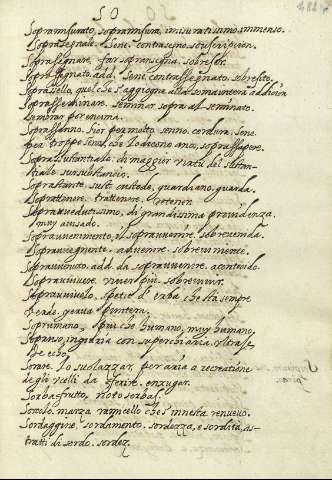 SO
Sopramisurato, sopramisura, misuratissimo immenso.
Soprasegnale. Sene. contrasegno. souscripcion.
Soprassegnare. far soprasegna. sobreser.
Soprassegnato. add. Sene. contrassegnato. sobresito.
Soprasello, quel che s'aggiogne alla soma intera.
Soprasseminare. seminar sopra al seminato.
sembrar por encima.
Soprassenno. Fior per molto senno. cordura. Sene
per troppo senno, che lo dicono anco, soprassapere.
Soprasustantiale. di maggior virtu del sustan-
tiale. sursubstancio.
Soprastante. sust. custode, guardiano. guarda.
Soprattenere. trattenere. retener.
Sopravvedutissimo, di grandissima providenza.
muy auisado.
Sopravvenimento, il sopravvenire. sobrevenida.
Sopravvegnente. advenire. sobreviniente.
Sopravvenuto. add. da sopravvenire. acontecido.
Sopravvivere. viver più. sobreviuir.
Sopravvivolo. spetie d'erba che sta sempre
verde, yerua puntera.
Sopr'umano, più che humano, muy humano,
Soprano, ingiuria con superchiaria. ultraje.
Sorare. Lo suolazzar, per aria a recreatione
degli vcelli da
Sorba frutto, noto sorbas.
Sorcolo. marza ramicello che s'innesta renueuo.
Sordaggine. sordamento. sordezza, e sordità, as-
tratti di sordo. sordez.